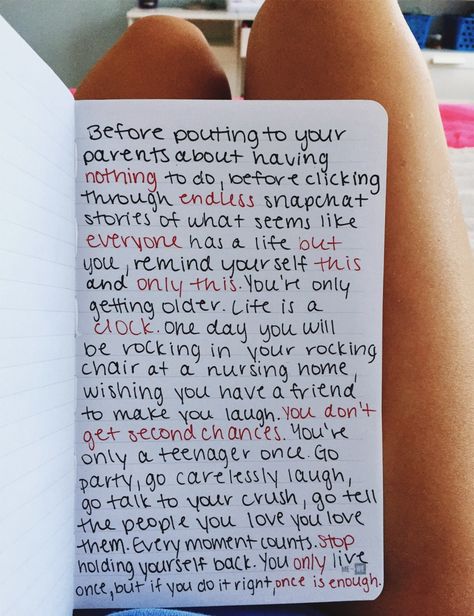 Before pouting to your
parents about having
nothing to do, before clicking
through endless snapchat
stories of what seems like
everyone has a life but
you, remind yourself this
and only this. You're only
getting older. Life is a
clock. One day you will
be rocking in your rocking
chair at a nursing home,
wishing you have a friend
to make you laugh. You don't
get second chances. You're
only a teenager once. Go
party, go carelessly laugh,
go talk to your crush, go tell
the people you love you love
them. Every moment counts. Stop
holding yourself back. You only live
once, but if you do it right, once is enough.